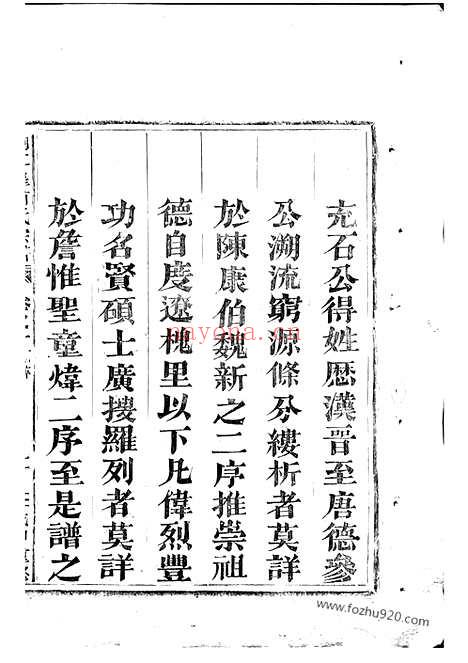 充石公得姓歷漢晉至唐德參
公溯流窮源條分縷析者莫詳
於陳康伯魏新之二序推崇祖
德自度遼槐里以下凡偉烈豐
功名賢碩士廣搜羅列者莫詳
於詹惟聖童煒二序至是譜之
nayona.cn
https://www.fozhu920.com/